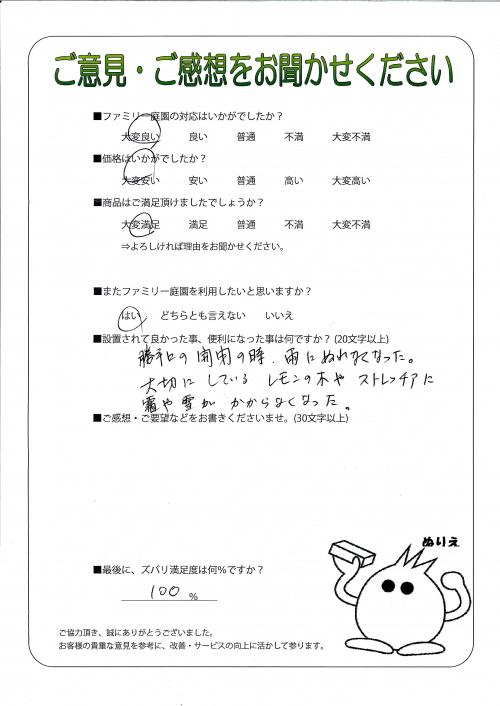 ご意見・ご感想をお聞かせください
■ファミリー庭園の対応はいかがでしたか？
大変良い 良い 普通 不満 大変不満
■価格はいかがでしたか？
大変安い 安い 普通 高い 大変高い
■商品はご満足頂けましたでしょうか？
大変満足 満足 普通 不満 大変不満
⇒よろしければ理由をお聞かせください。
■またファミリー庭園を利用したいと思いますか？
はい どちらとも言えない いいえ
■設置されて良かった事、便利になった事は何ですか？(20文字以上)
勝手口の開閉の時、雨にぬれなくなった。
大切にしている レモンの木や ストレッチアに
霜や雪が かからなくなった。
■ご感想・ご要望などをお書きくださいませ。(30文字以上)
ぬりえ
■最後に、ズバリ満足度は何％ですか？
100 %
ご協力頂き、誠にありがとうございました。
お客様の貴重な意見を参考に、改善・サービスの向上に活かして参ります。